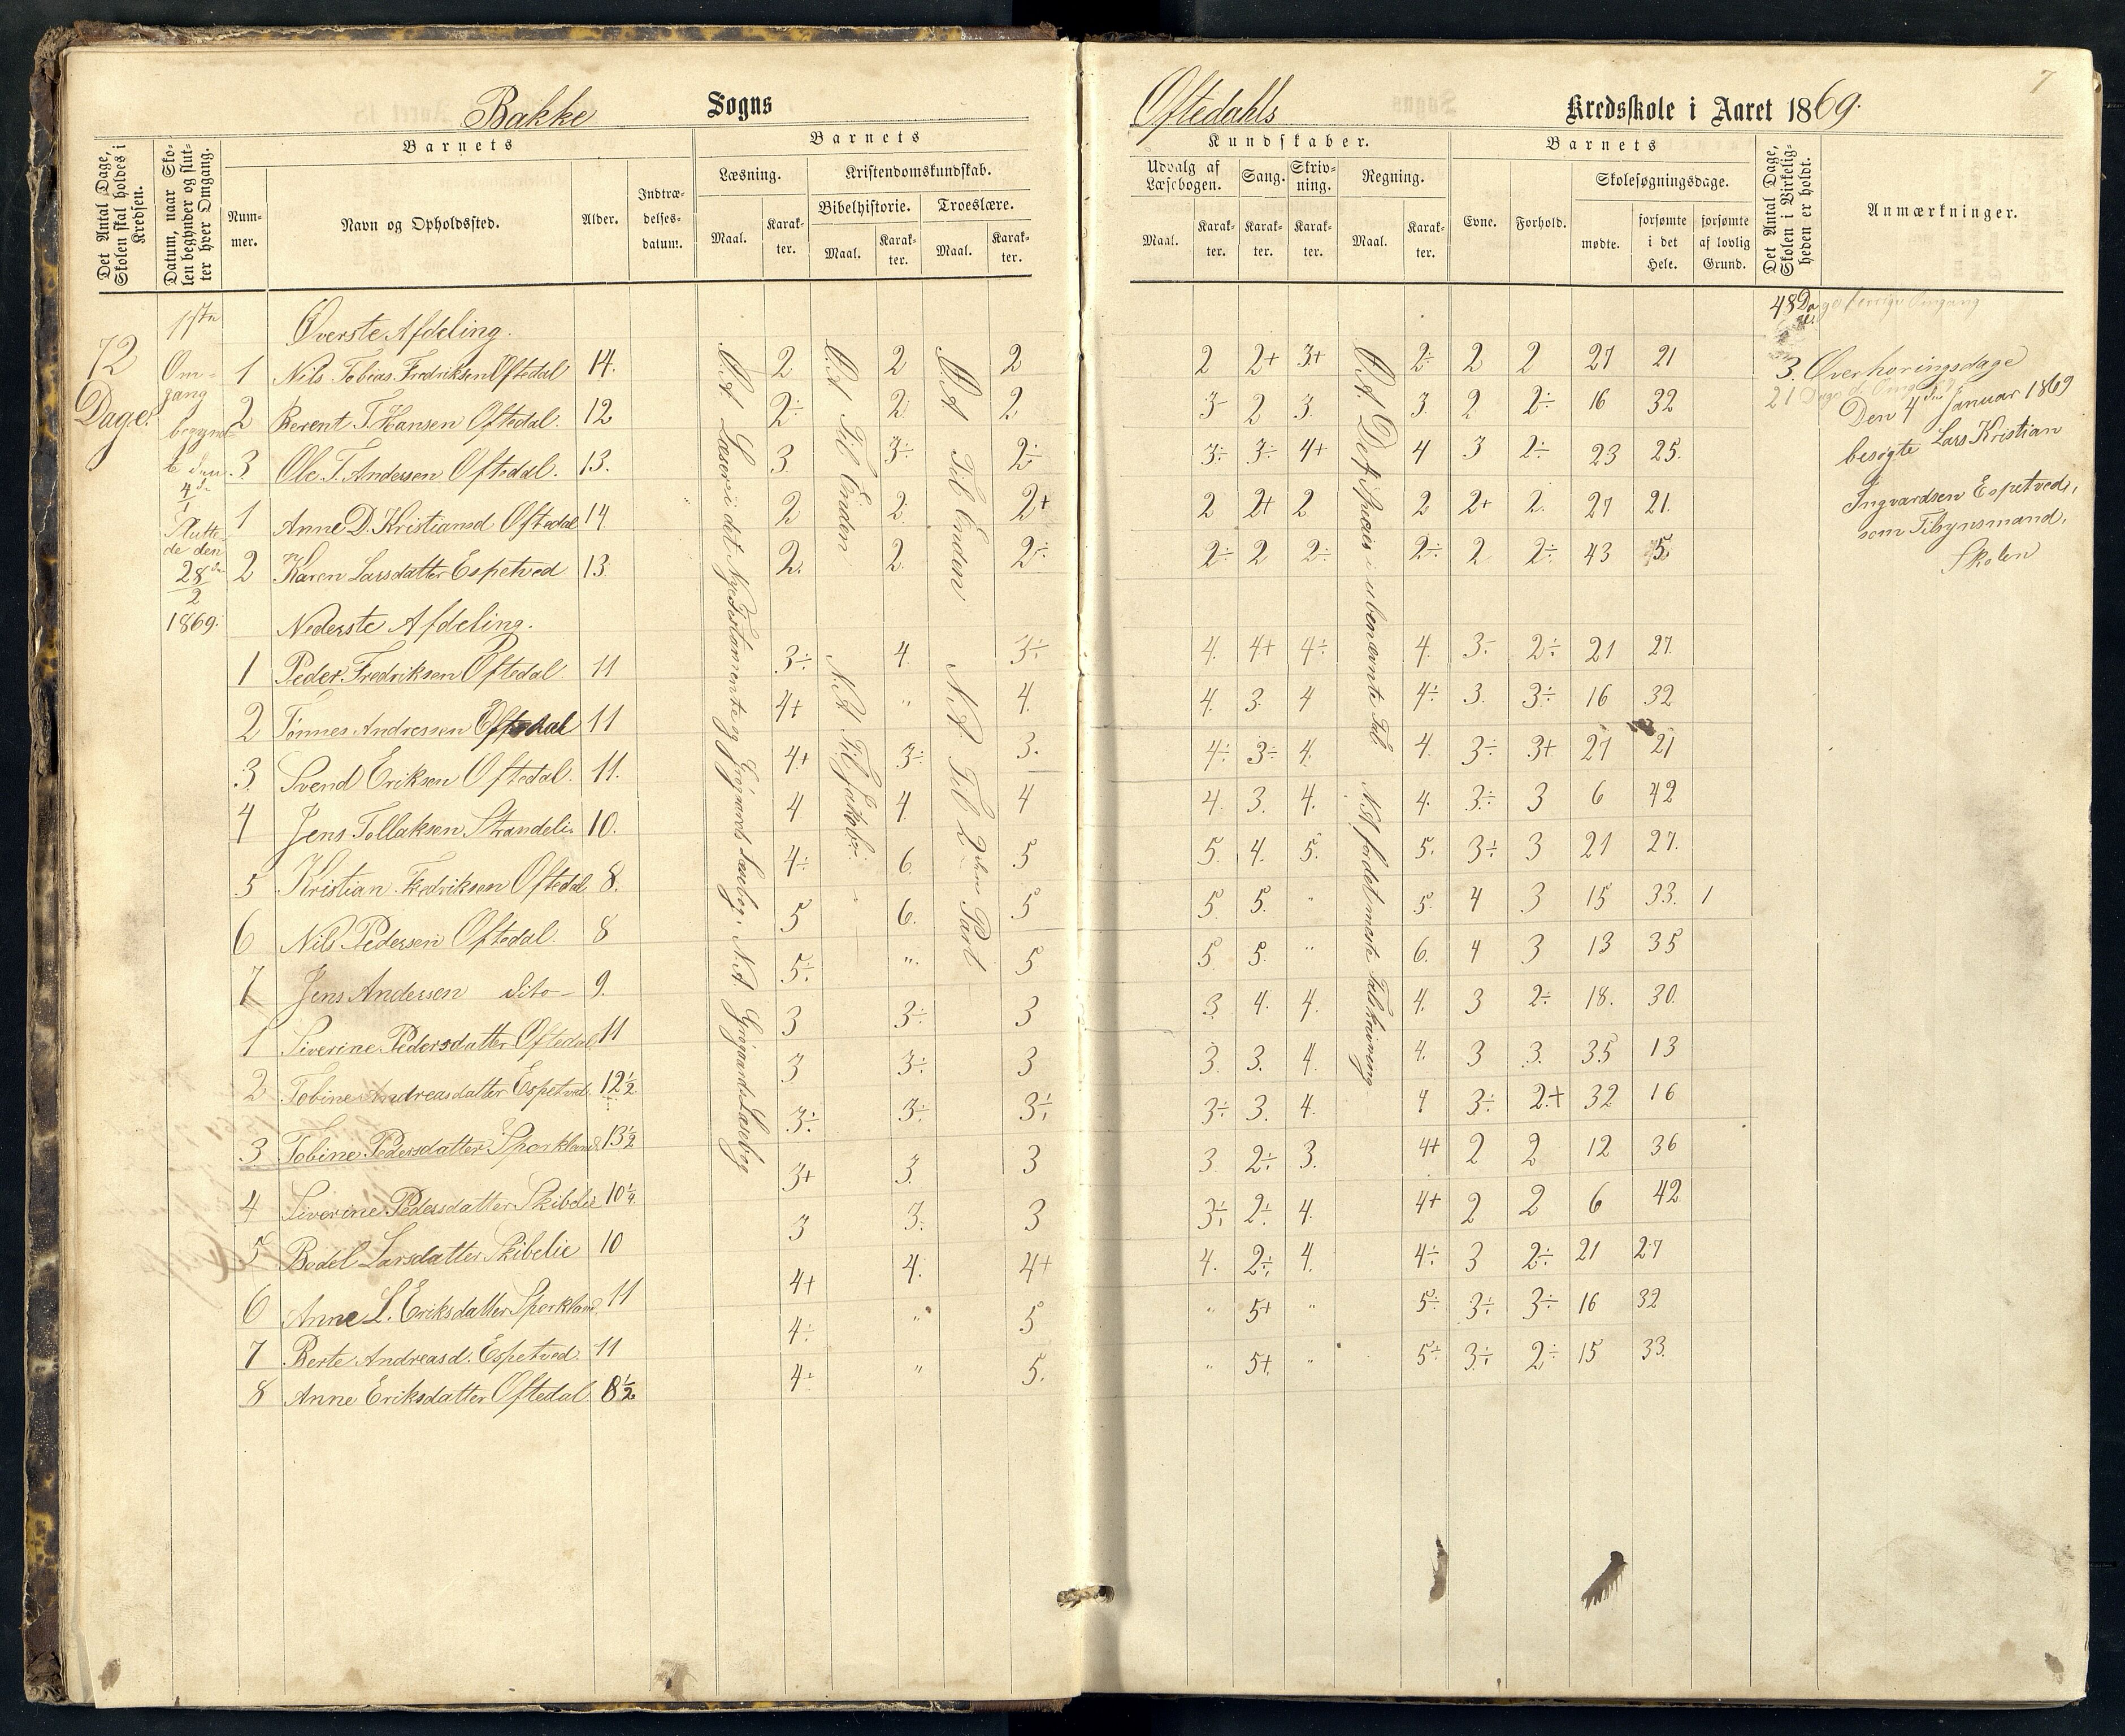 Bakke Sogns
Oftedahls Kredsskole i Aaret 1869.
7
Det Antal Dage, Skolen skal holdes i Kredsen.
Datum, naar Skolen begynder og slutter hver Omgang.
Barnets
Nummer.
Navn og Opholdssted.
Alder.
Indtrædelsesdatum.
Barnets
Læsning.
Maal.
Karakter.
Kristendomskundskab.
Bibelhistorie.
Maal.
Karakter.
Troeslære.
Maal.
Karakter.
Kundskaber.
Udvalg af Læsebogen.
Maal.
Karakter.
Sang.
Karakter.
Skrivning.
Karakter.
Regning.
Maal.
Karakter.
Barnets
Evne.
Forhold.
Skolesøgningsdage.
mødte.
forsømte i det Hele.
forsømte af lovlig Grund.
Det Antal Dage, Skolen i Virkeligheden er holdt.
Anmærkninger.
72
Dage.
1ste
Om-
gang
begynd-
te den
4de
1
Slutte-
de den
28de
2
1869.
Øverste Afdeling.
1 Nils Tobias Fredriksen Oftedal 14. 2 2 2 2 2+ 3+ 2÷ 2 2 27 21
2 Berent T. Hansen Oftedal. 12 2÷ 2 2 3- 2 3. 3. 2 2÷ 16 32
3 Ole T. Andersen Oftedal. 13. 3. 3÷ 2÷ 3÷ 3÷ 4+ 4 3 2÷ 23 25.
1 Anne D. Kristiansd Oftedal 14. 2 2. 2+ 2 2+ 2 2 2+ 2. 27 21.
2 Karen Larsdatter Espetved 13. 2. 2. 2÷ 2÷ 2 2÷ 2÷ 2 2÷ 43 5.
Nederste Afdeling.
1 Peder Fredriksen Oftedal. 11 3÷ 4. 3÷ 4. 4+ 4÷ 4. 3- 2÷ 21 27.
2 Tønnes Andressen Oftedal 11 4+ " 4. 4. 3. 4 4÷ 3. 3÷ 16 32
3 Svend Eriksen Oftedal. 11. 4+ 3÷ 3. 4÷ 3÷ 4. 4. 3÷ 3+ 27 21
4 Jens Tollaksen Strandeli. 10. 4 4. 4 4. 3. 4. 4. 3÷ 3 6 42
5 Kristian Fredriksen Oftedal 8. 4÷ 6. 5 5. 4. 5. 5. 3÷ 3 21 27.
6 Nils Pedersen Oftedal. 8 5 6. 5 5. 5. " 5. 4 3 15 33. 1
7 Jens Andersen dito 9. 5÷ " 5 5 5. " 6. 4 3 13 35
1 Siverine Pedersdatter Oftedal. 11 3 3÷ 3 3. 4. 4. 4. 3 2÷ 18. 30.
2 Tobine Andreasdatter Espetved. 12½ 3 3÷ 3 3. 3. 4. 4. 3 3. 35 13
3 Tobine Pedersdatter Sporkland. 13½ 3÷ 3÷ 3÷ 3÷ 3. 4. 4 3÷ 2+ 32 16
4 Siverine Pedersdatter Skibelie 10¼ 3+ 3. 3 3. 2÷ 3. 4+ 2 2 12 36
5 Bodel Larsdatter Skibelie 10 3 3÷ 3 3÷ 2÷ 4. 4+ 2 2 6 42
6 Anne L. Eriksdatter Sporkland. 11 4+ 4. 4+ 4. 2÷ 4. 4÷ 3 2÷ 21 27
7 Berte Andreasd. Espetved. 11 4÷ " 5 " 5+ " 5÷ 3÷ 3÷ 16 32
8 Anne Eriksdatter Oftedal. 8½ 4÷ " 5. " 5+. " 5÷ 3÷ 2÷ 15 33.
Ø.A. Læser i det Nye Testamente og Grøgaards Læsebog. N.A. Grøgaards Læsebog
Ø.A Til Enden
N.A Til Jakobs.
Ø.A Til Enden
N.A. Til 2den Part
Ø.A. De 4 Species i ubenævnte Tal.
48 Dage forrige Omgang
3. Overhøringsdage
21
Den 4de Januar 1869
besøgte Lars Kristian
Ingvardsen Espetved,
som Tilsynsmand,
Skolen